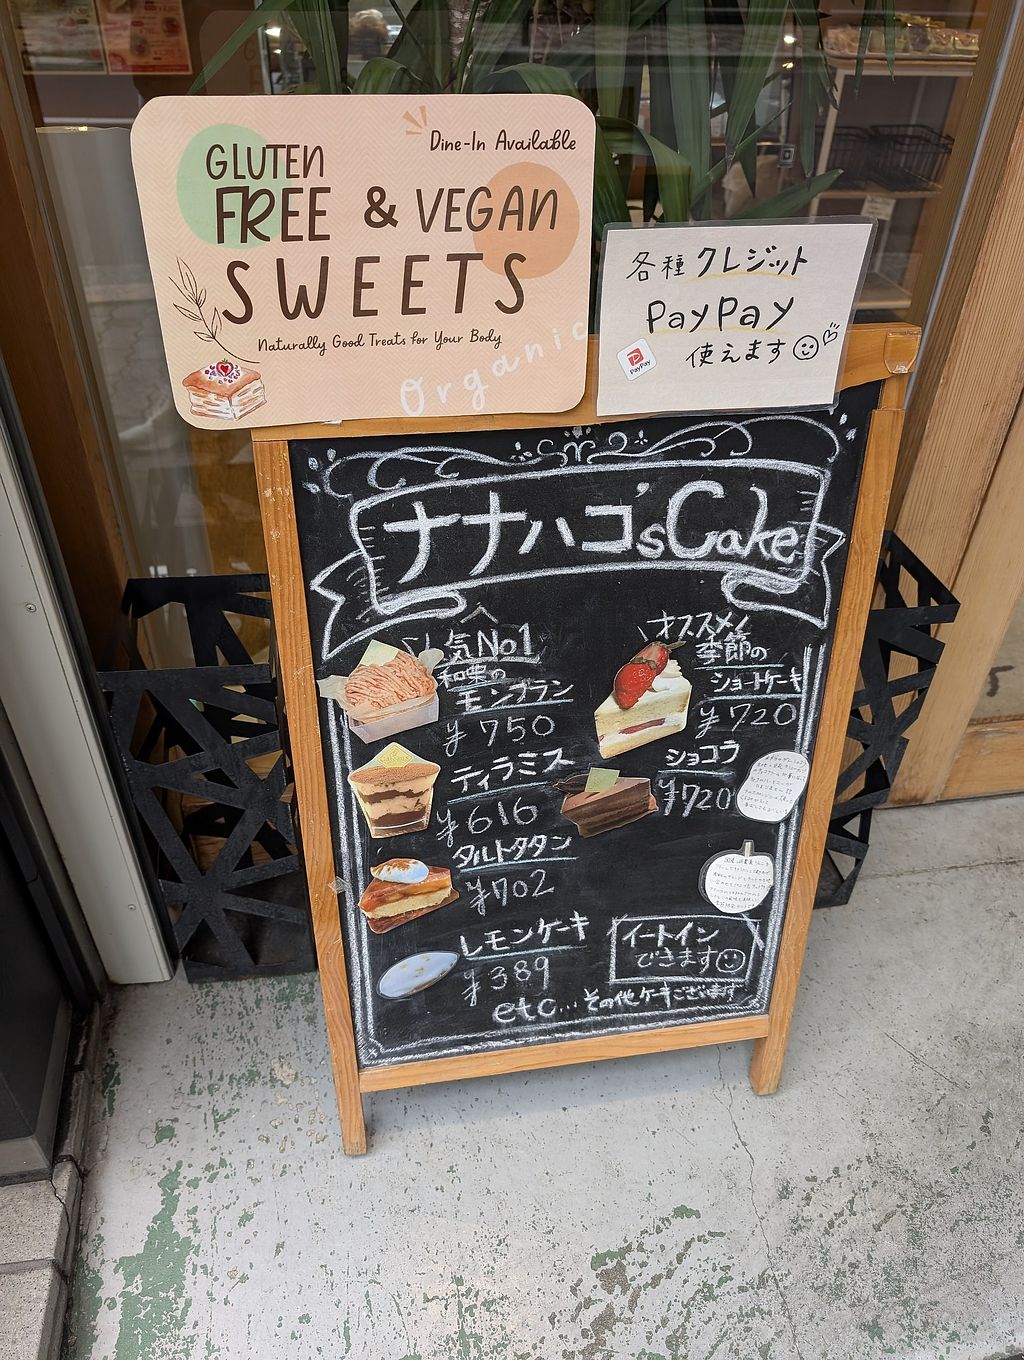 Dine-In Available
GLUTEN
FREE & VEGAN
SWEETS
Naturally Good Treats for Your Body
Organic
各種クレジット
PayPay
使えます
PayPay
ナナハコ'sCake
人気No1
和栗の
モンブラン
¥750
ティラミス
¥616
タルトタタン
¥702
レモンケーキ
¥389
オススメ!
季節の
ショートケーキ
¥720
ショコラ
¥720
イートイン
できます
etc...その他ケーキございます